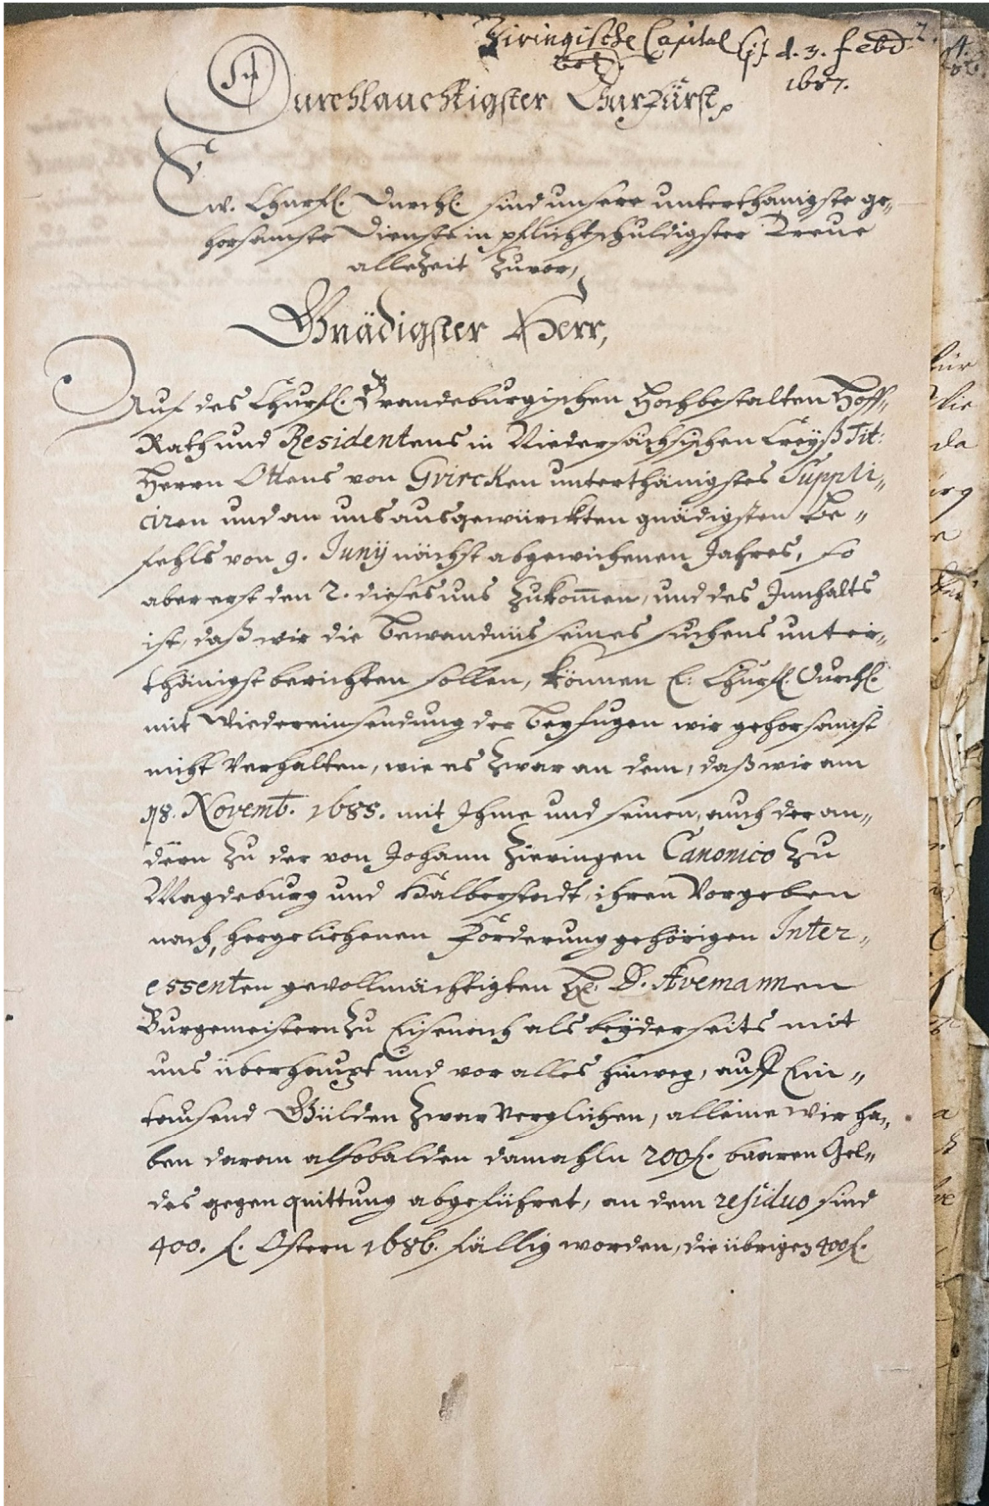 Ziringische Capital
betr. d. 3. Febr.
1687.
Durchlauchtigster Churfürst,
Ew. Churfl. Durchl. sind unsere unterthänigste ge-
horsamste Dienste in pflichtschuldigster Treue
allezeit zuvor,
Gnädigster Herr,
Auf des Churfl. Brandeburgischen Hochbestalten Hoff-
Rath und Residentens in Niedersächsischen Creyß Tit:
Herrn Ottens von Gvircken unterthänigstes Suppli-
ciren und an uns ausgewürckten gnädigsten Be-
fehls von 9. Junij nächst abgewichenen Jahres, so
aber erst den 2. dieses uns zukom̄en, und des Innhalts
ist, daß wir die bewandnüs seines suchens unter-
thänigst berichten sollen, können E. Churfl. Durchl.
mit Wiedereinsendung der beyfugen wir gehorsamst
nicht verhalten, wie es zwar an dem, daß wir am
18. Novemb. 1685. mit Ihme und seinen, auch der an-
dern zu der von Johann Zieringen Canonico zu
Magdeburg und Halberstadt, ihren Vorgeben
nach, hergeliehenen Forderung gehörigen Inter-
essenten gevollmächtigten H. D. Avemannen
Burgemeistern zu Eisenach als beyderseits mit
uns überhaupt und vor alles hinweg, auff Ein-
tausend Gülden zwar verglichen, alleine wir ha-
ben daran alsobalden damahln 200f. baaren Gel-
des gegen quittung abgeführet, an dem residuo sind
400. f. Ostern 1686. fällig worden, die übrigen 400f.